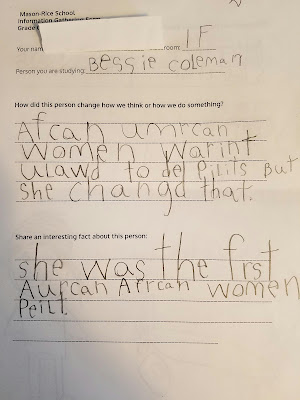 Mason-Rice School
Information Gathering Form
Grade
Your nam room: 1F
Person you are studying: Bessie coleman
How did this person change how we think or how we do something?
Afcan umrcan
women warint
ulawd to dei Pilits But
she changd that.
Share an interesting fact about this person:
she was the frst
Aurcan Afrcan women
Peilt.